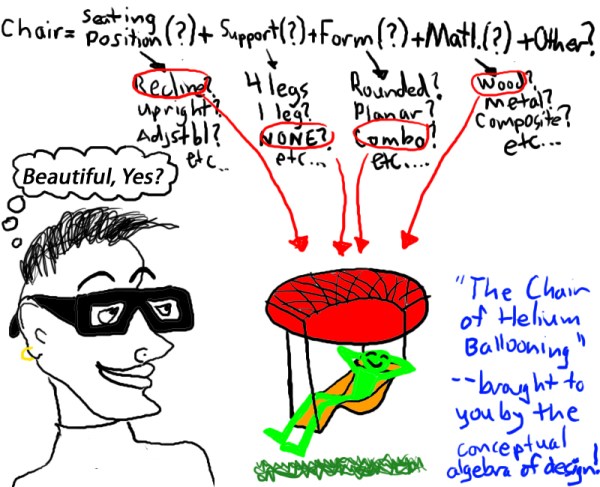 Chair= Seating Position(?)+ Support(?)+Form(?)+Matl.(?)+Other?
Recline?
Upright?
Adjstbl?
etc...
4 legs
1 leg?
NONE?
etc...
Rounded?
Planar?
Combo?
etc....
Wood?
Metal?
Composite?
etc...
Beautiful, Yes?
"The Chair
of Helium
Ballooning"
--brought to
you by the
conceptual
algebra of design!